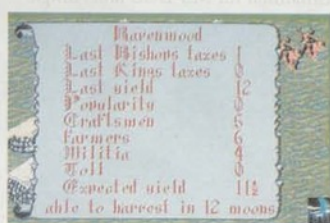 Ravenwood
Last Bishops taxes 1
Last Kings taxes 0
Last yield 12
Popularity 0
Craftsmen 5
Farmers 6
Militia 4
Toll 0
Expected yield 11½
able to harvest in 12 moons